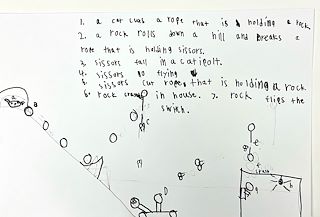 1. a cat cuts a rope that is holding a rock
2. a rock rolls down a hill and breaks a
rope that is holding sissors.
3 sissors fall in a catipolt.
4. sissors go flying
5 sissors cut rope that is holding a rock.
6. rock in house. 7. rock flips the
swich.
A
B
C
D
e
F
g
h